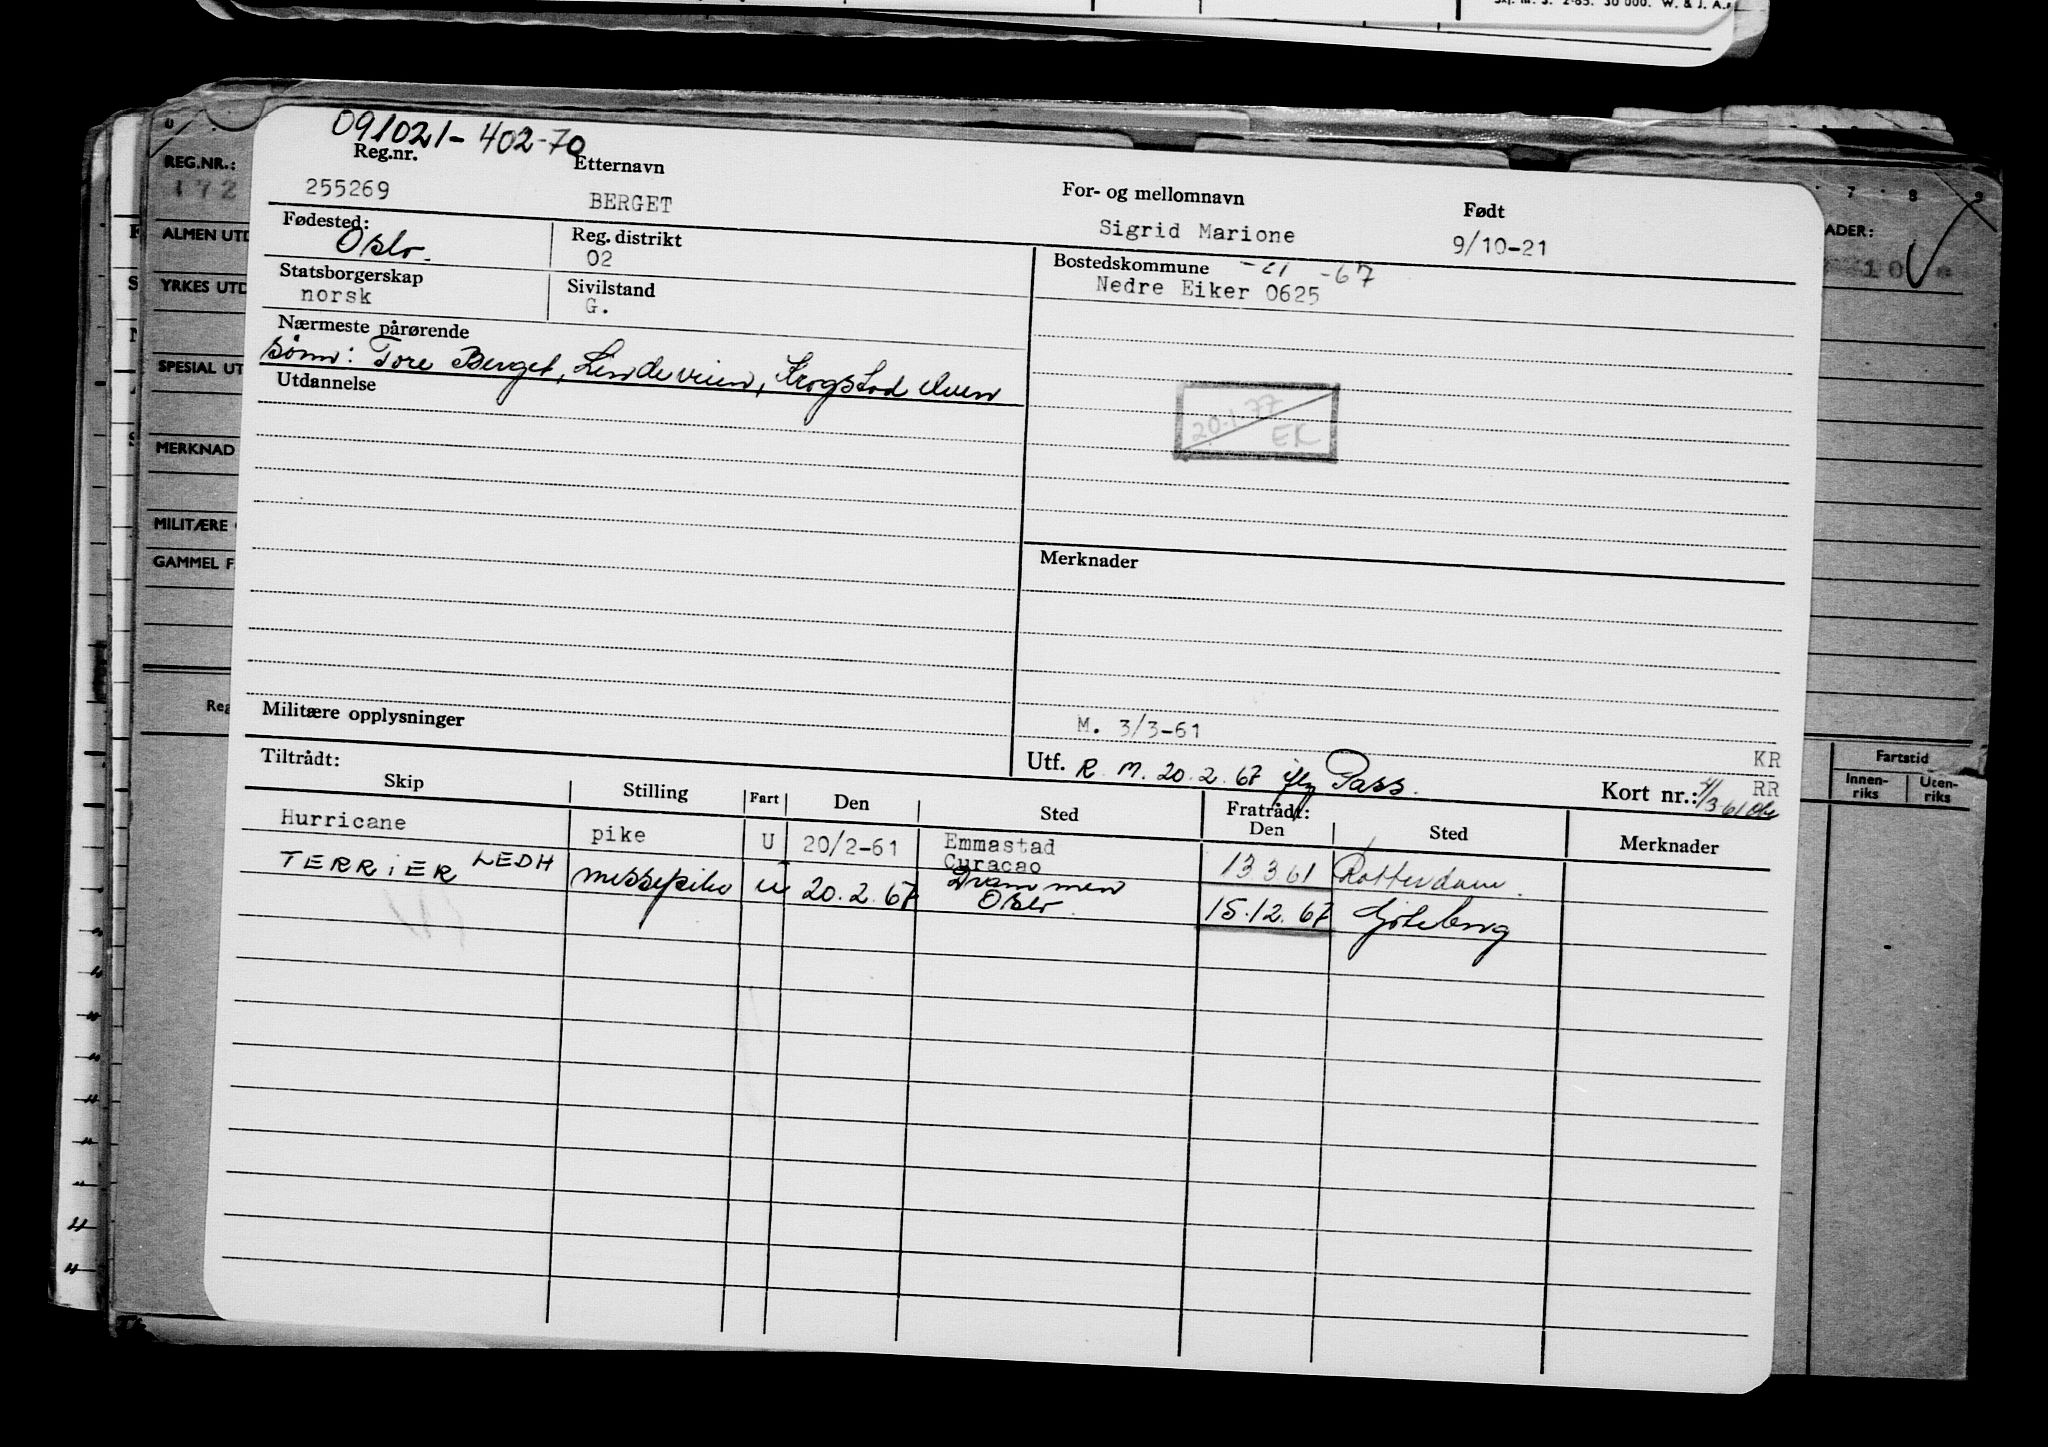 Skj. nr. 3. 2-65. 30 000. W. & J. A.s
091021-402-70
Reg.nr. Etternavn For- og mellomnavn Født
255269 BERGET Sigrid Marione 9/10-21
Fødested: Reg. distrikt Bostedskommune -67
Oslo. 02 Nedre Eiker 0625
Statsborgerskap Sivilstand
norsk G.
Nærmeste pårørende
Sønn: Tore Berget, Lindeveien, Krogstadelven
Utdannelse
20.1.77
EK
Merknader
Militære opplysninger
M. 3/3-61
KR
Utf. R. M. 20.2.67 iflg Pass. Kort nr.: RR
4/3-61
Tiltrådt: Fratrådt:
Skip Stilling Fart Den Sted Den Sted Merknader
Hurricane pike U 20/2-61 Emmastad Curacao 13.3.61 Rotterdam.
TERRIER LEDH messepike u 20.2.67 Drammen Oslo 15.12.67 Gøteborg
REG.NR.:
172
ALMEN UTD
YRKES UTD
SPESIAL UT
MERKNAD
MILITÆRE
GAMMEL F
Reg
7 8 9
ADER:
10
Fartstid
Innen-riks Uten-riks